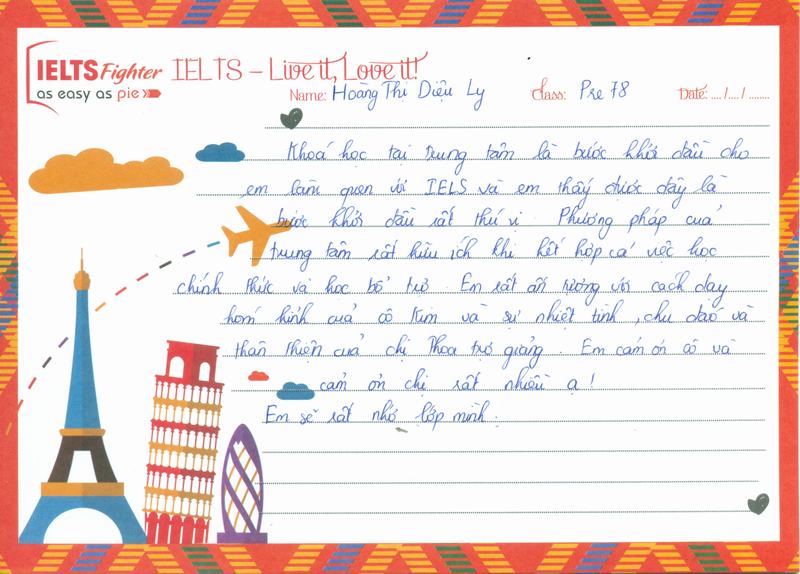 IELTS Fighter
as easy as pie
IELTS – Live it, Love it!
Name: Hoàng Thị Diệu Ly Class: Pre 78 Date: .... /.... / .......
Khoá học tại trung tâm là bước khởi đầu cho
em làm quen với IELS và em thấy được đây là
bước khởi đầu rất thú vị. Phương pháp của
trung tâm rất hữu ích khi kết hợp cả việc học
chính thức và học bổ trợ. Em rất ấn tượng với cách dạy
hóm hỉnh của cô Kim và sự nhiệt tình, chu đáo và
thân thiện của chị Thoa trợ giảng. Em cảm ơn cô và
cảm ơn chị rất nhiều ạ!
Em sẽ rất nhớ lớp mình.